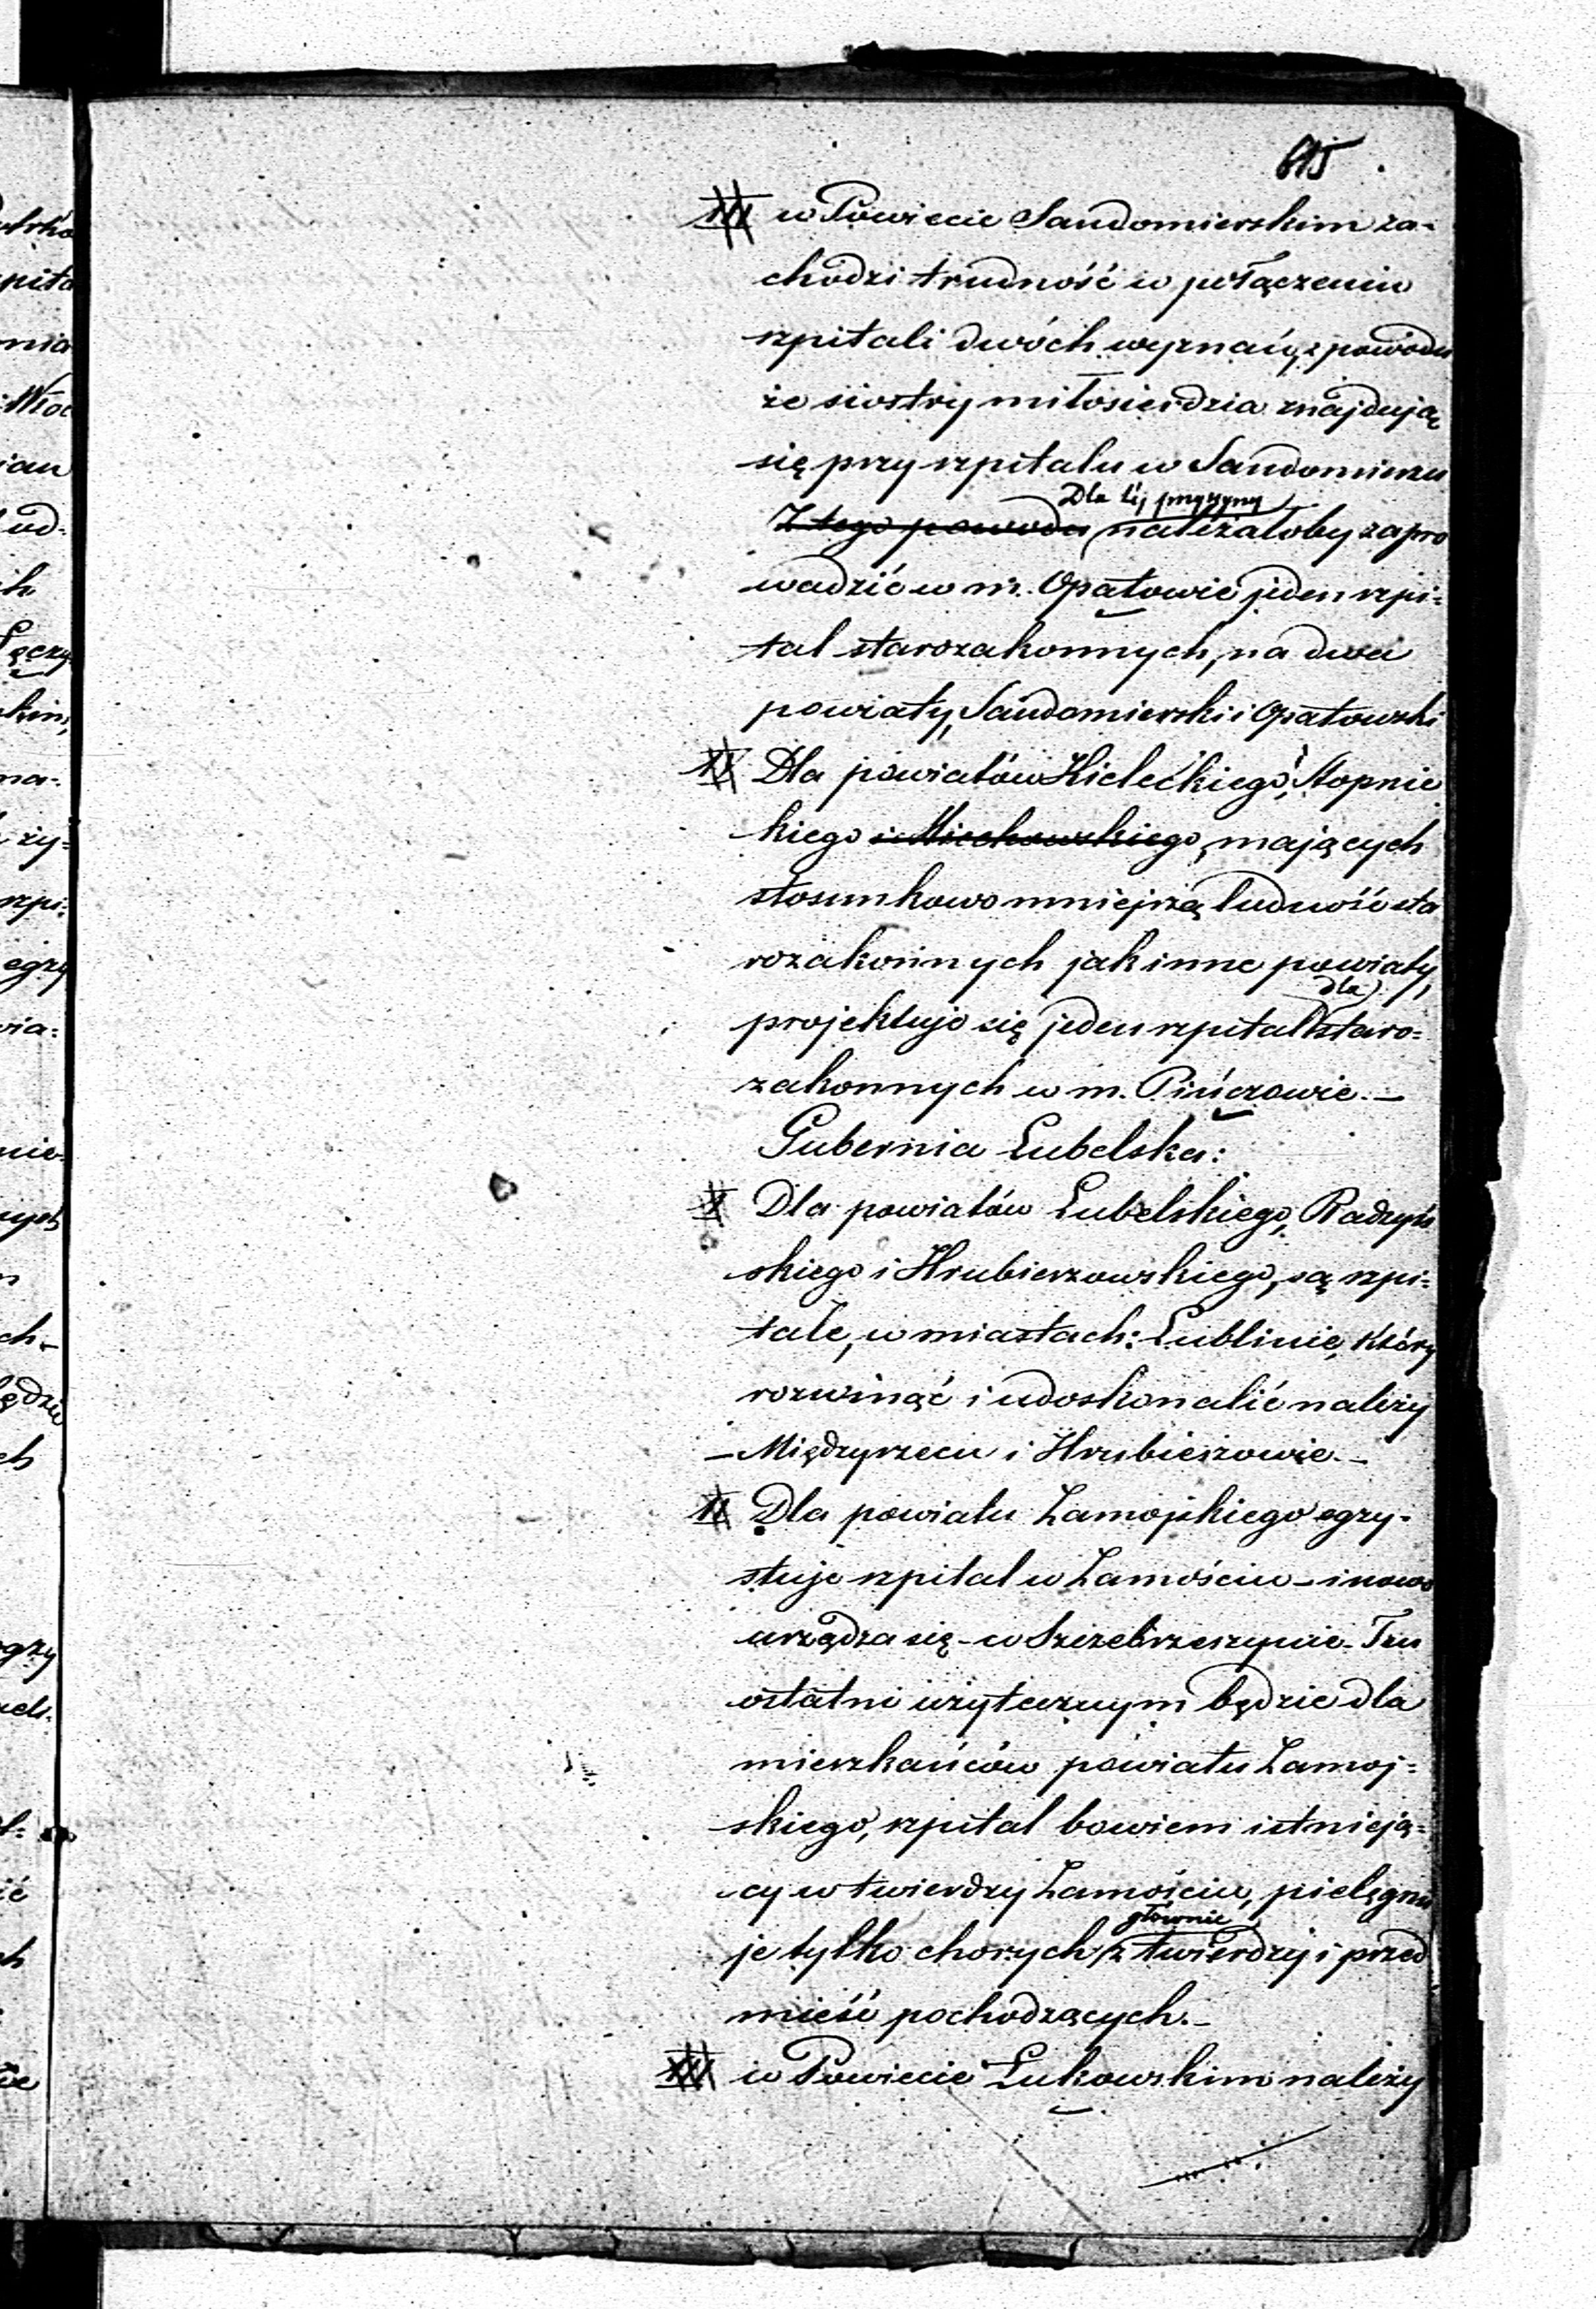 615
w Powiecie Sandomierskim za-
chodzi trudność w połączeniu
szpitali dwóch wyznań, z powodu
że siostry miłosierdzia znajdują
się przy szpitalu w Sandomierzu
Dla tej przyczyny
Z tego powodu należałoby zapro
wadzić w m. Opatowie jeden szpi-
tal starozakonnych, na dwa
powiaty, Sandomierski i Opatowski
Dla powiatów Kieleckiego, Stopnic
kiego i Miechowskiego, mających
stosunkowo mniejszą ludność sta
rozakonnych jak inne powiaty,
dla
projektuje się jeden szpital staro-
zakonnych w m. Pińczowie.–
Gubernia Lubelska:
X Dla powiatów Lubelskiego, Radzyń
skiego i Hrubieszowskiego, są szpi-
tale, w miastach: Lublinie, który
rozwinąć i udoskonalić należy
– Międzyrzecu i Hrubieszowie.–
Dla powiatu Zamojskiego egzy-
stuje szpital w Zamościu – i nowo
urządza się – w Szczebrzeszynie. Ten
ostatni użytecznym będzie dla
mieszkańców powiatu Zamoj-
skiego, szpital bowiem istnieją-
cy w twierdzy Zamościu, pielęgnu
głównie
je tylko chorych z twierdzy i przed
mieść pochodzących.–
w Powiecie Łukowskim należy